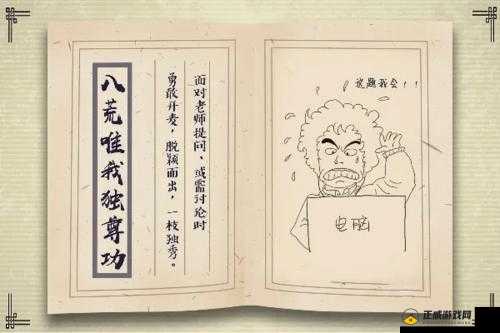 八荒唯我独尊功
面对老师提问、或需讨论时
勇敢开麦，脱颖而出，一枝独秀。
这题我会！！
电脑
正威游戏网